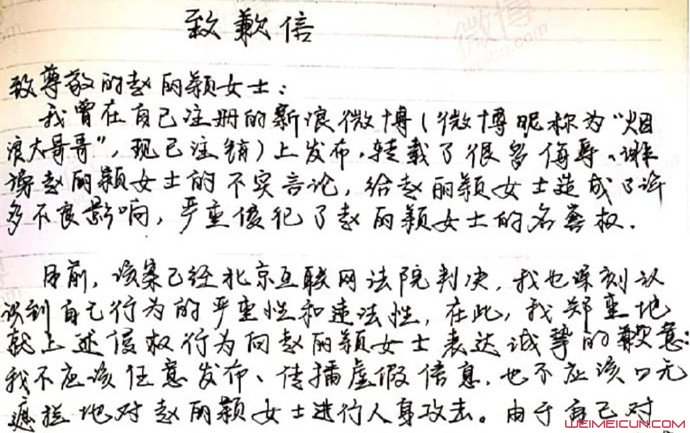 致歉信
致尊敬的赵丽颖女士：
我曾在自己注册的新浪微博（微博昵称为“烟
浪大哥哥”，现已注销）上发布、转载了很多侮辱、诽
谤赵丽颖女士的不实言论，给赵丽颖女士造成了许
多不良影响，严重侵犯了赵丽颖女士的名誉权．
目前，该案已经北京互联网法院判决，我也深刻认
识到自己行为的严重性和违法性，在此，我郑重地
就上述侵权行为向赵丽颖女士表达诚挚的歉意：
我不应该任意发布、传播虚假信息，也不应该口无
遮拦地对赵丽颖女士进行人身攻击。由于自己对
WEIMEICUN.COM